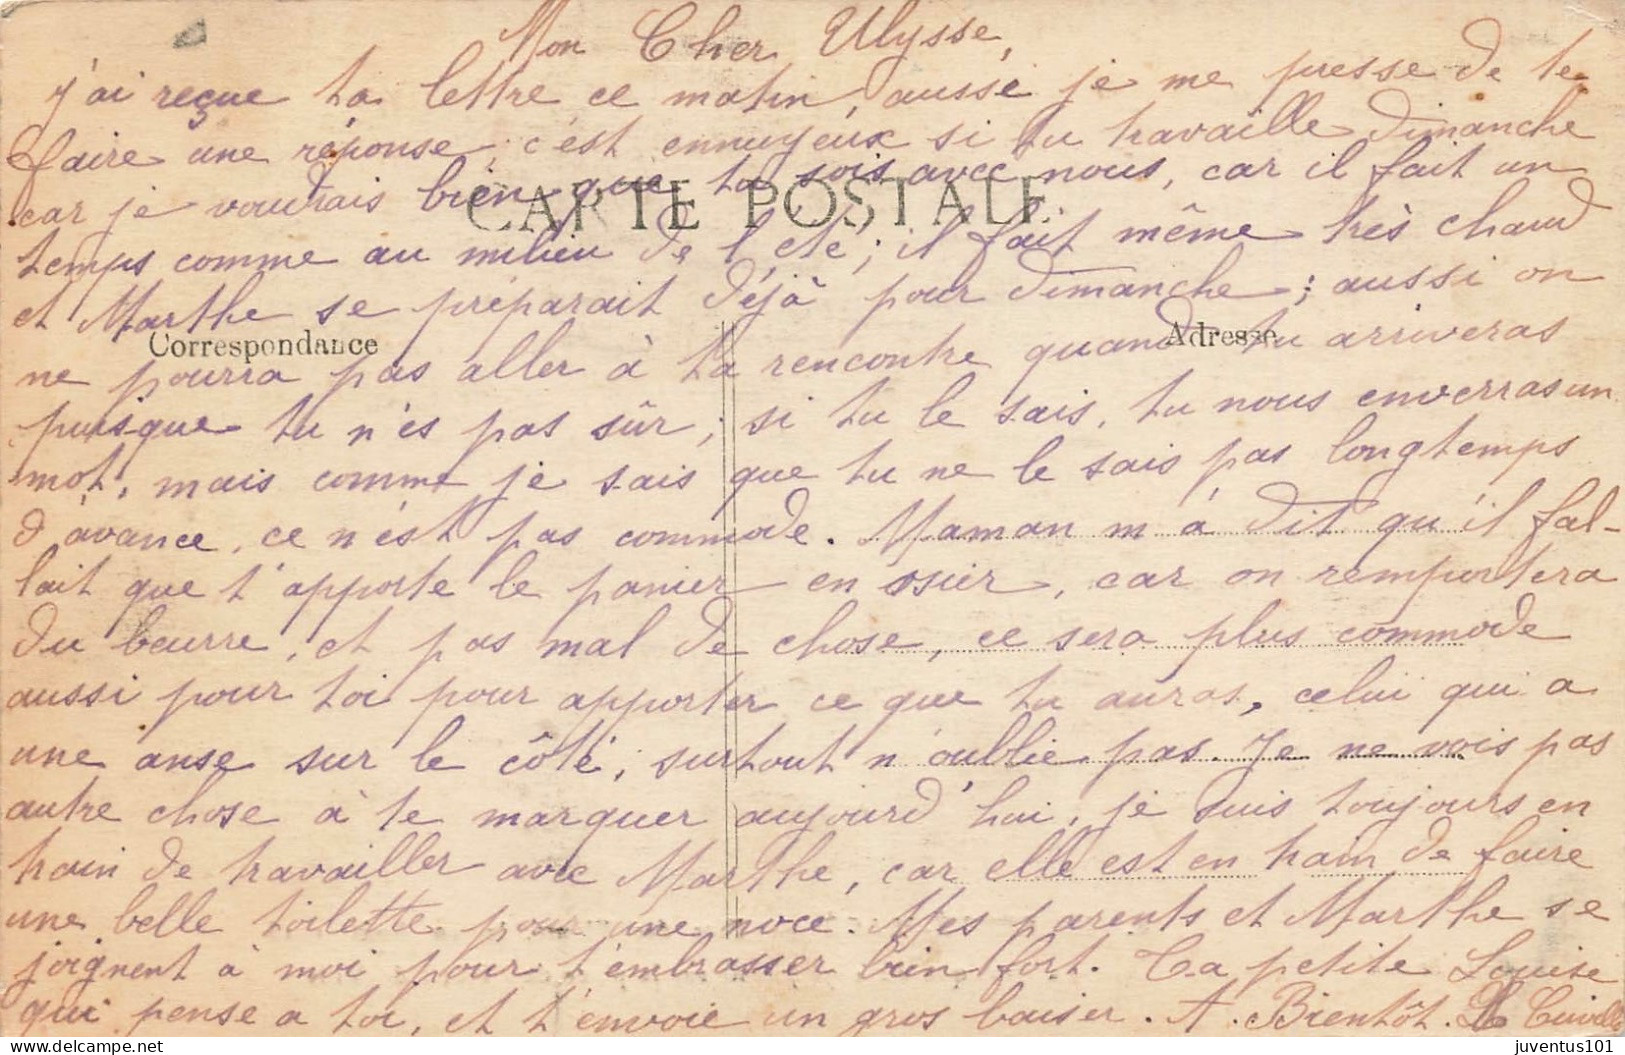 Mon Cher Ulysse,
j'ai reçue ta lettre ce matin, aussi je me presse de te
faire une réponse, c'est ennuyeux si tu travaille dimanche
car je voudrais bien que tu sois avec nous, car il fait un
CARTE POSTALE
temps comme au milieu de l'été; il fait même très chaud
et Marthe se préparait déjà pour dimanche; aussi on
Correspondance
Adresse
ne pourra pas aller à ta rencontre quand tu arriveras
puisque tu n'es pas sûr; si tu le sais, tu nous enverras un
mot, mais comme je sais que tu ne le sais pas longtemps
d'avance, ce n'est pas commode. Maman m'a dit qu'il fal-
lait que t'apporte le panier en osier, car on remportera
du beurre, et pas mal de chose, ce sera plus commode
aussi pour toi pour apporter ce que tu auras, celui qui a
une anse sur le côté, surtout n'oublie pas. Je ne vois pas
autre chose à te marquer aujourd'hui, je suis toujours en
train de travailler avec Marthe, car elle est en train de faire
une belle toilette pour une noce. Mes parents et Marthe se
joignent à moi pour t'embrasser bien fort. Ta petite Louise
qui pense a toi, et t'envoie un gros baiser. A. Bientôt.
delcampe.net
juventus101